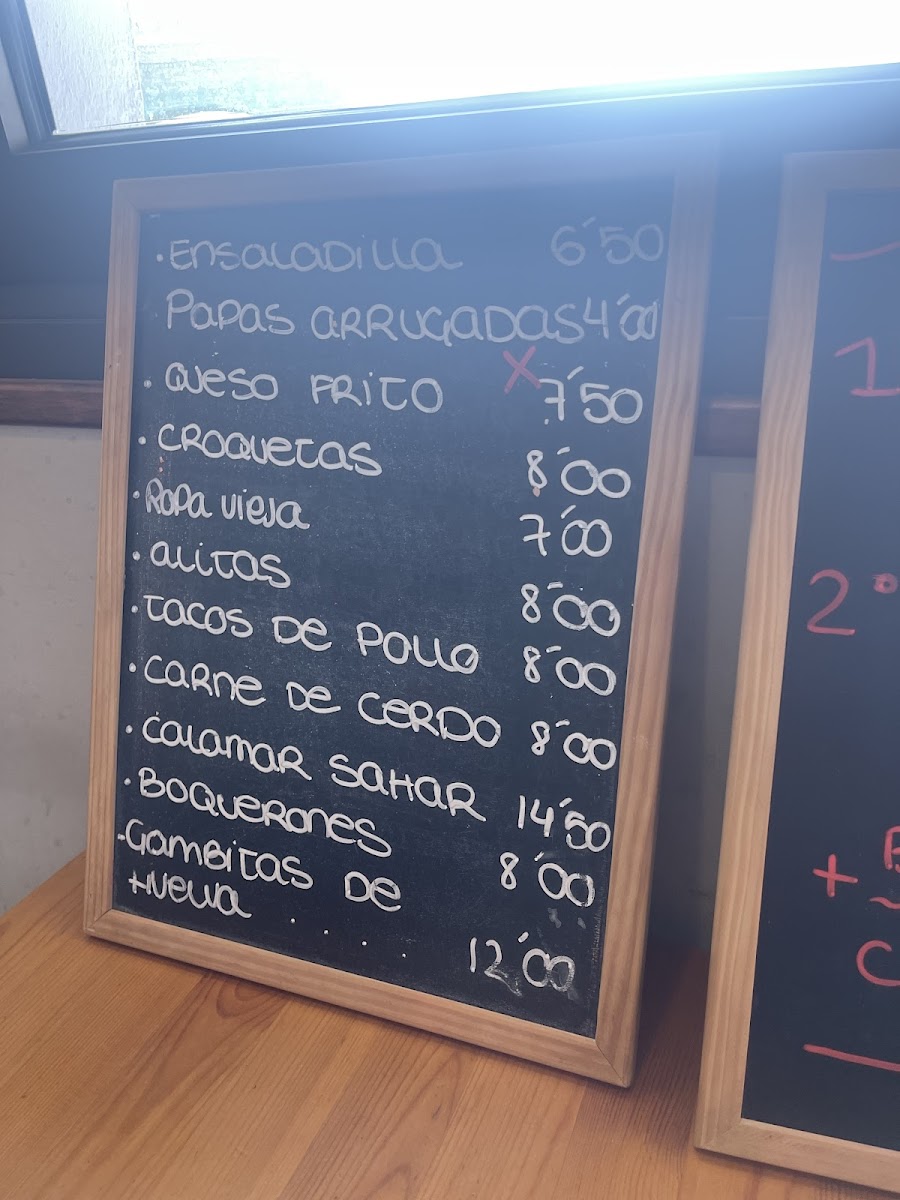 . Ensaladilla 6'50
Papas arrugadas 4'00
. Queso frito X 7'50
. Croquetas 8'00
. Ropa vieja 7'00
. Alitas 8'00
. Tacos de pollo 8'00
. Carne de cerdo 8'00
. Calamar sahar 14'50
. Boquerones 8'00
- Gambitas de
+nella . . . . 12'00
1
2º
+
C